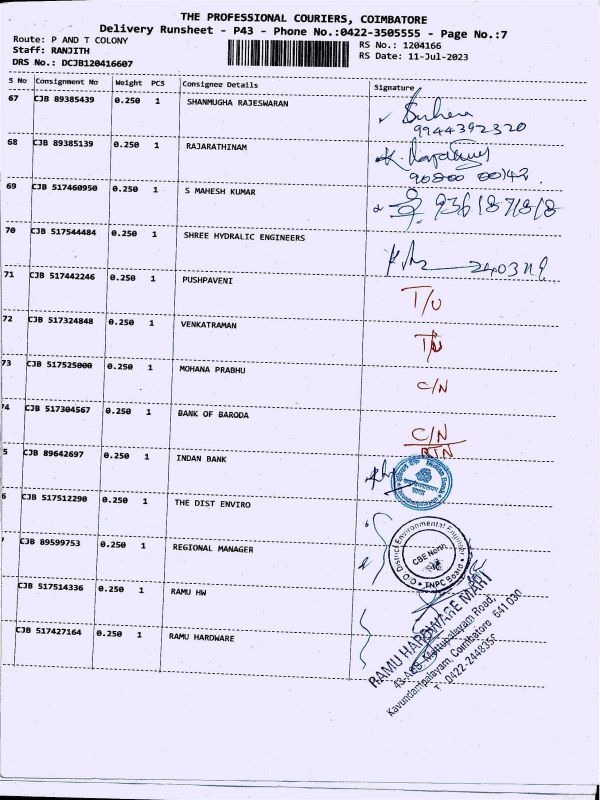 THE PROFESSIONAL COURIERS, COIMBATORE
Delivery Runsheet - P43 - Phone No.:0422-3505555 - Page No.:7
Route: P AND T COLONY
Staff: RANJITH
DRS No.: DCJB120416607
RS No.: 1204166
RS Date: 11-Jul-2023
S No Consignment No Weight PCS Consignee Details Signature
67 CJB 89385439 0.250 1 SHANMUGHA RAJESWARAN
9944392320
68 CJB 89385139 0.250 1 RAJARATHINAM
69 CJB 517460950 0.250 1 S MAHESH KUMAR
70 CJB 517544484 0.250 1 SHREE HYDRALIC ENGINEERS
71 CJB 517442246 0.250 1 PUSHPAVENI T/U
72 CJB 517324848 0.250 1 VENKATRAMAN T/U
73 CJB 517525000 0.250 1 MOHANA PRABHU C/N
74 CJB 517304567 0.250 1 BANK OF BARODA C/N
RTN
5 CJB 89642697 0.250 1 INDAN BANK
Indian Bank
6 CJB 517512290 0.250 1 THE DIST ENVIRO
O/O District Environmental Engineer
CBE North
TNPC Board
CJB 89599753 0.250 1 REGIONAL MANAGER
CJB 517514336 0.250 1 RAMU HW
CJB 517427164 0.250 1 RAMU HARDWARE
RAMU HARDWARE MART
Mettupalayam Road,
Kavundampalayam, Coimbatore 641 030